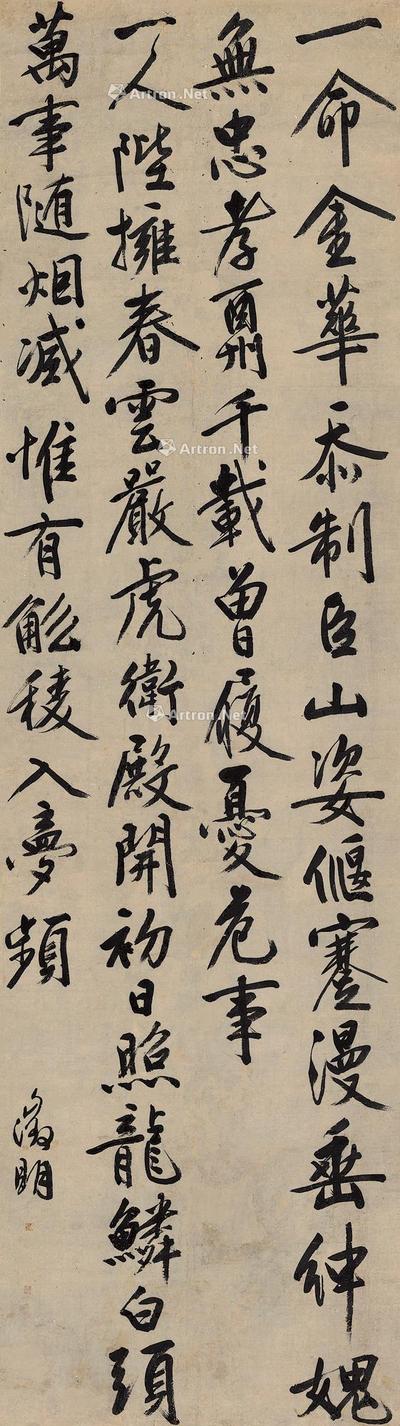 一命金華忝制臣山姿偃蹇漫垂紳媿
無忠孝酬千載曾履憂危事
一人陛擁春雲嚴虎衛殿開初日照龍鱗白頭
萬事随烟滅惟有觚稜入夢頻
徵明
Artron.Net
Artron.Net
Artron.Net
Artron.Net